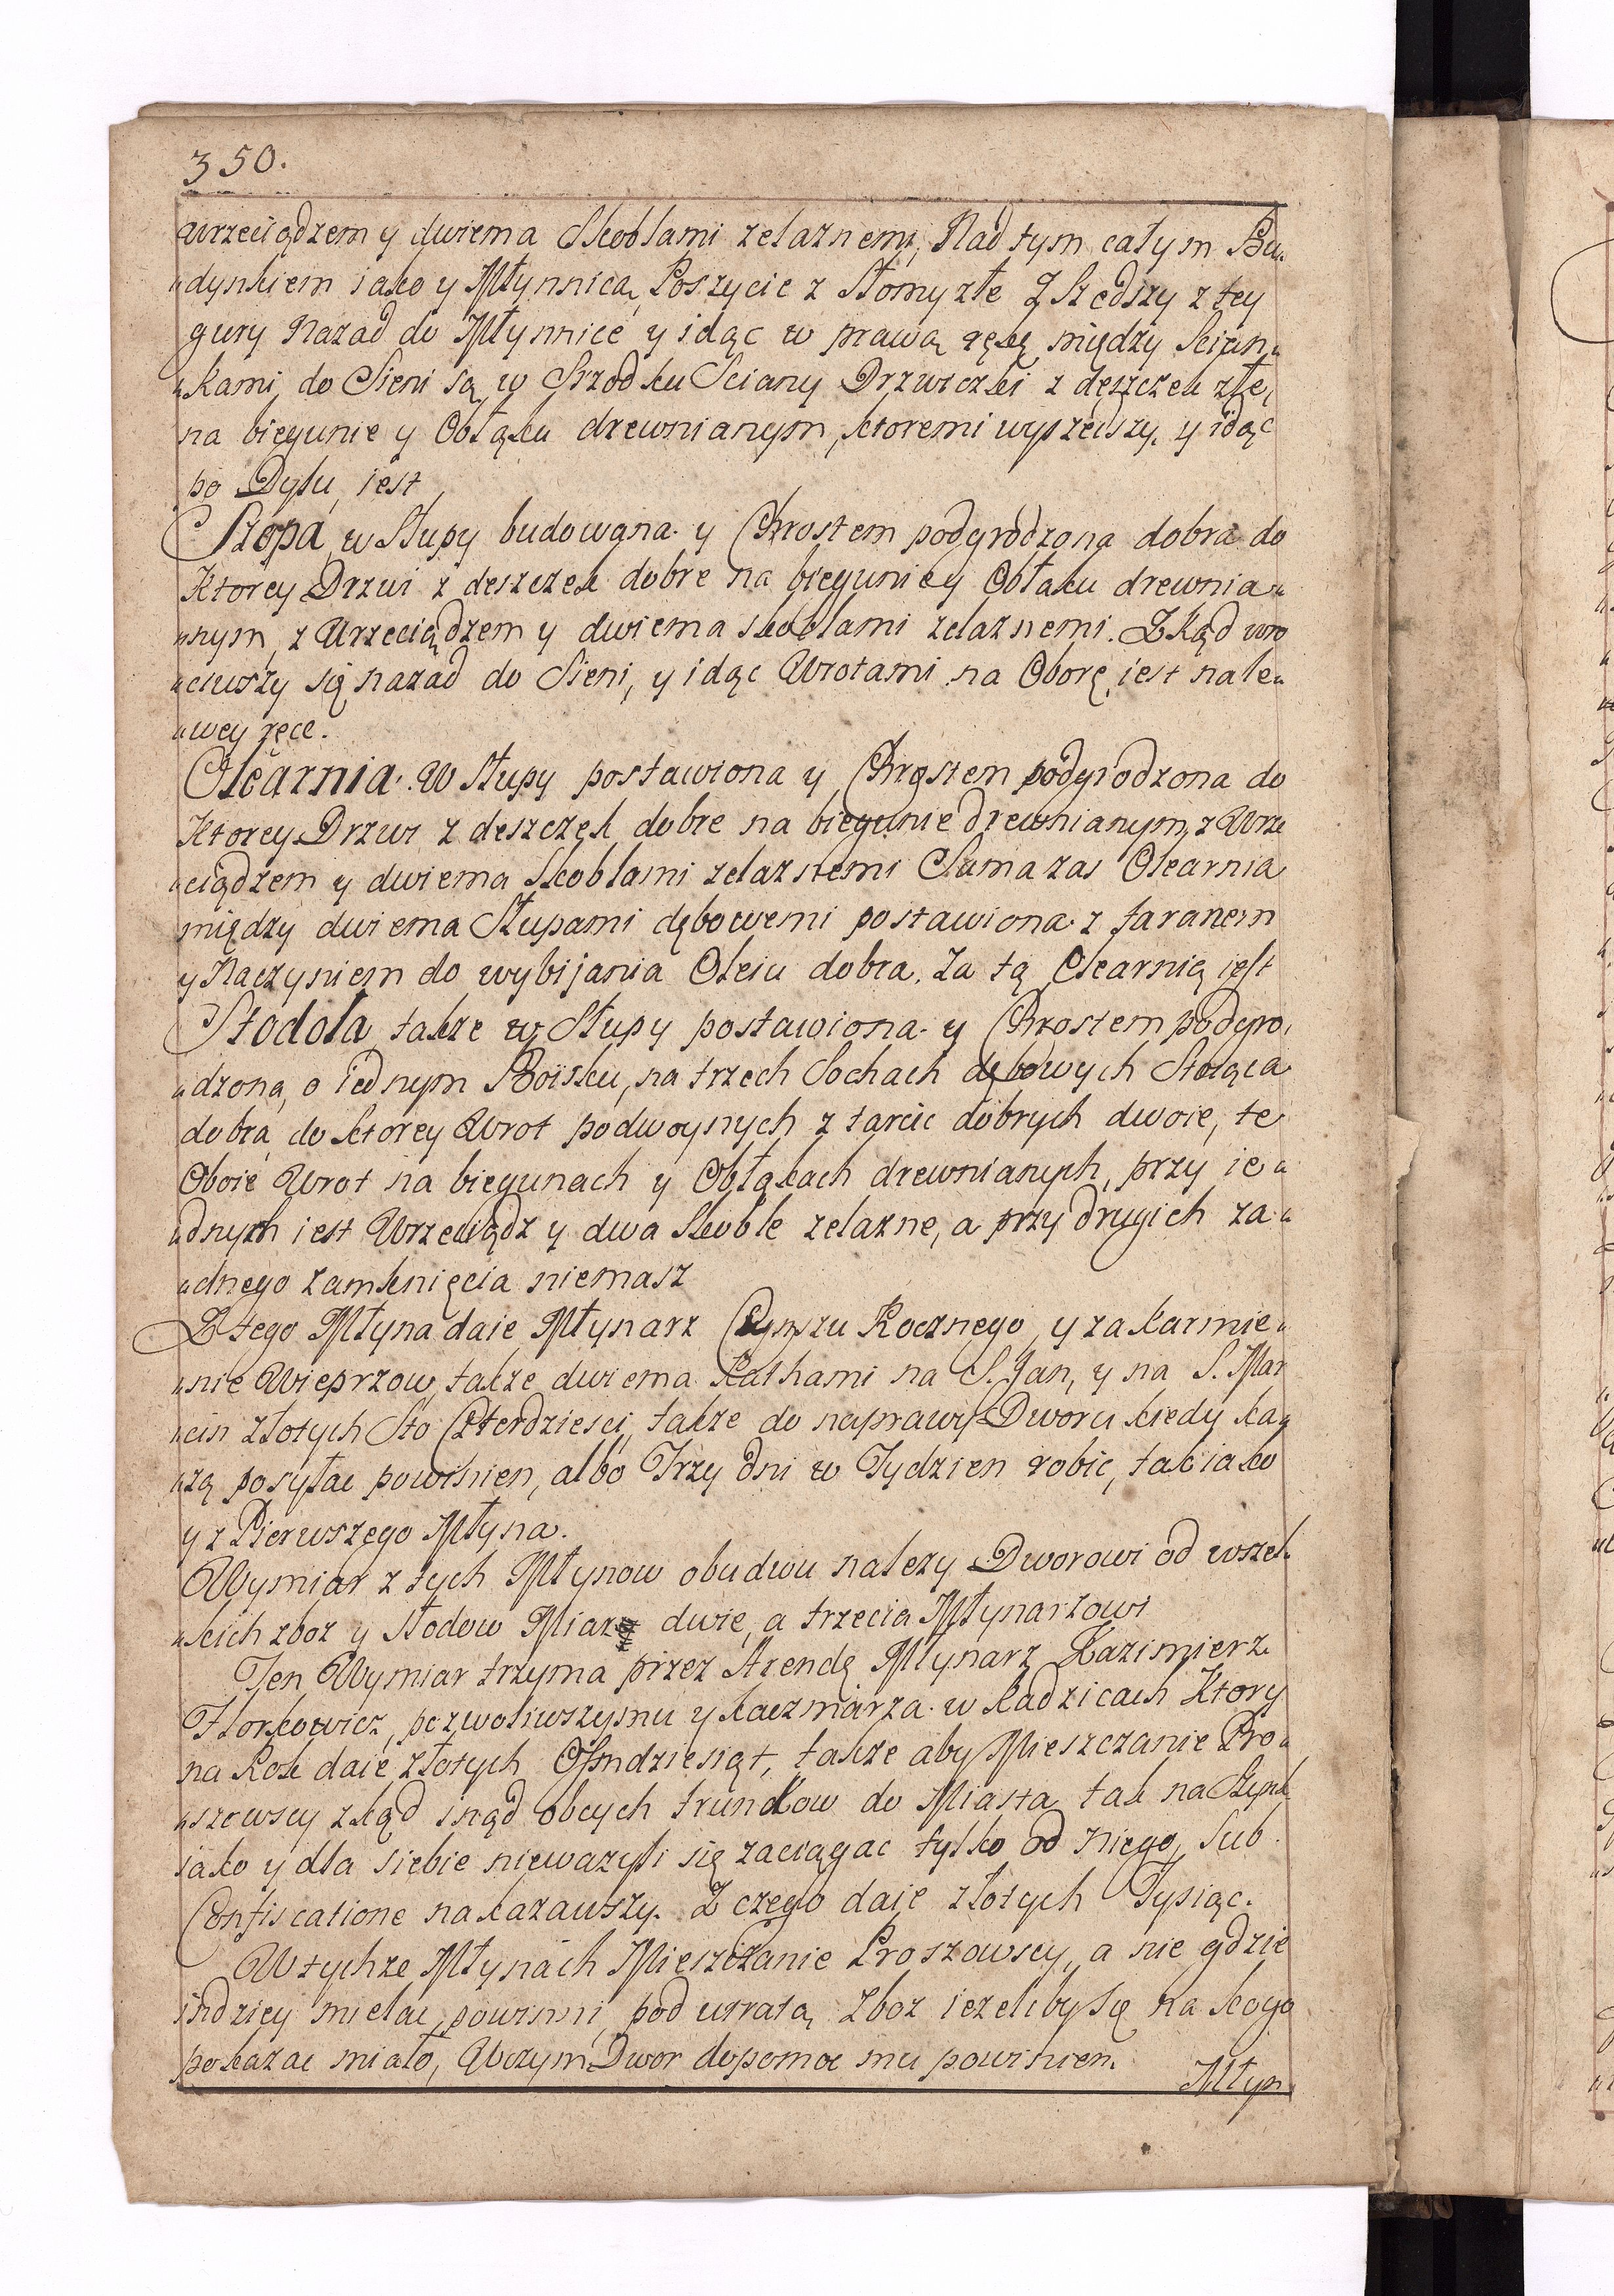 350.
wrzeciądzem y dwiema Skoblami zelaznemi, Nad tym całym Bu„
„dynkiem iako y Młynnicą Poszycie z Słomy złe Zszedszy z tey
gury nazad do Młynnice y idąc w prawą rękę między Scian„
„kami, do Sieni są w Srzodku Sciany Drzwiczki z deszczek złe,
na biegunie y Obłąku drewnianym, ktoremi wyszedszy, y idąc
po Dylu iest
Szopa w Słupy budowana y Chrostem podgrodzona dobra do
Ktorey Drzwi z deszczek dobre na biegunie y Obłaku drewnia„
„nym, z Wrzeciądzem y dwiema skoblami zelaznemi. Zkąd wro
„ciwszy się nazad do Sieni, y idąc Wrotami na Oborę, iest na le„
„wey ręce.
Olearnia. W Słupy postawiona y Chrostem podgrodzona do
Ktorey Drzwi z deszczek dobre na biegunie drewnianym, z Wrze
„ciądzem y dwiema Skoblami zelaznemi Sama zas Olearnia
między dwiema Słupami dębowemi postawiona z taranem
y Naczyniem do wybijania Oleiu dobra. Za tą Olearnią iest
Stodoła takze w Słupy postawiona y Chrostem podgro„
„dzona, o iednym Boisku, na trzech Sochach dębowych Stoiąca
dobra do ktorey Wrot podwoynych z tarcic dobrych dwoie, te
Oboie Wrot na biegunach y Obłąkach drewnianych, przy ie„
„dnych iest Wrzeciądz y dwa Skoble zelazne, a przy drugich za„
„dnego zamknięcia niemasz
Z tego Młyna daie Młynarz Czynszu Rocznego, y za karmie„
„nie Wieprzow, takze dwiema Rathami na S. Jan, y na S. Mar
„cin złotych Sto Czterdziesci, takze do naprawy Dworu kiedy ka„
„zą posyłac powinien, albo Trzy dni w Tydzien robic, tak iako
y z Pierwszego Młyna.
Wymiar z tych Młynow obudwu nalezy Dworowi od wszel„
„kich zboz y słodow Miary dwie, a trzecia Młynarzowi
Ten Wymiar trzyma przez Arendę Młynarz Kazimierz
Florkowicz, pozwoliwszy mu y kaczmarza w Kadzicach Ktory
na Rok daie złotych Osmdziesiąt, takze aby Mieszczanie Pro„
„szowscy zkąd inąd obcych trunkow do Miasta tak na Szynk
iako y dla siebie niewazyli się zaciągac tylko od niego, Sub
Confiscatione nakazawszy. Z czego daie złotych Tysiąc.
W tychze Młynach Mieszczanie Proszowscy, a nie gdzie
indziey mielac powinni, pod utratą Zboz iezeliby się na kogo
pokazac miało, Wczym Dwor dopomoc mu powinien.
Młyn